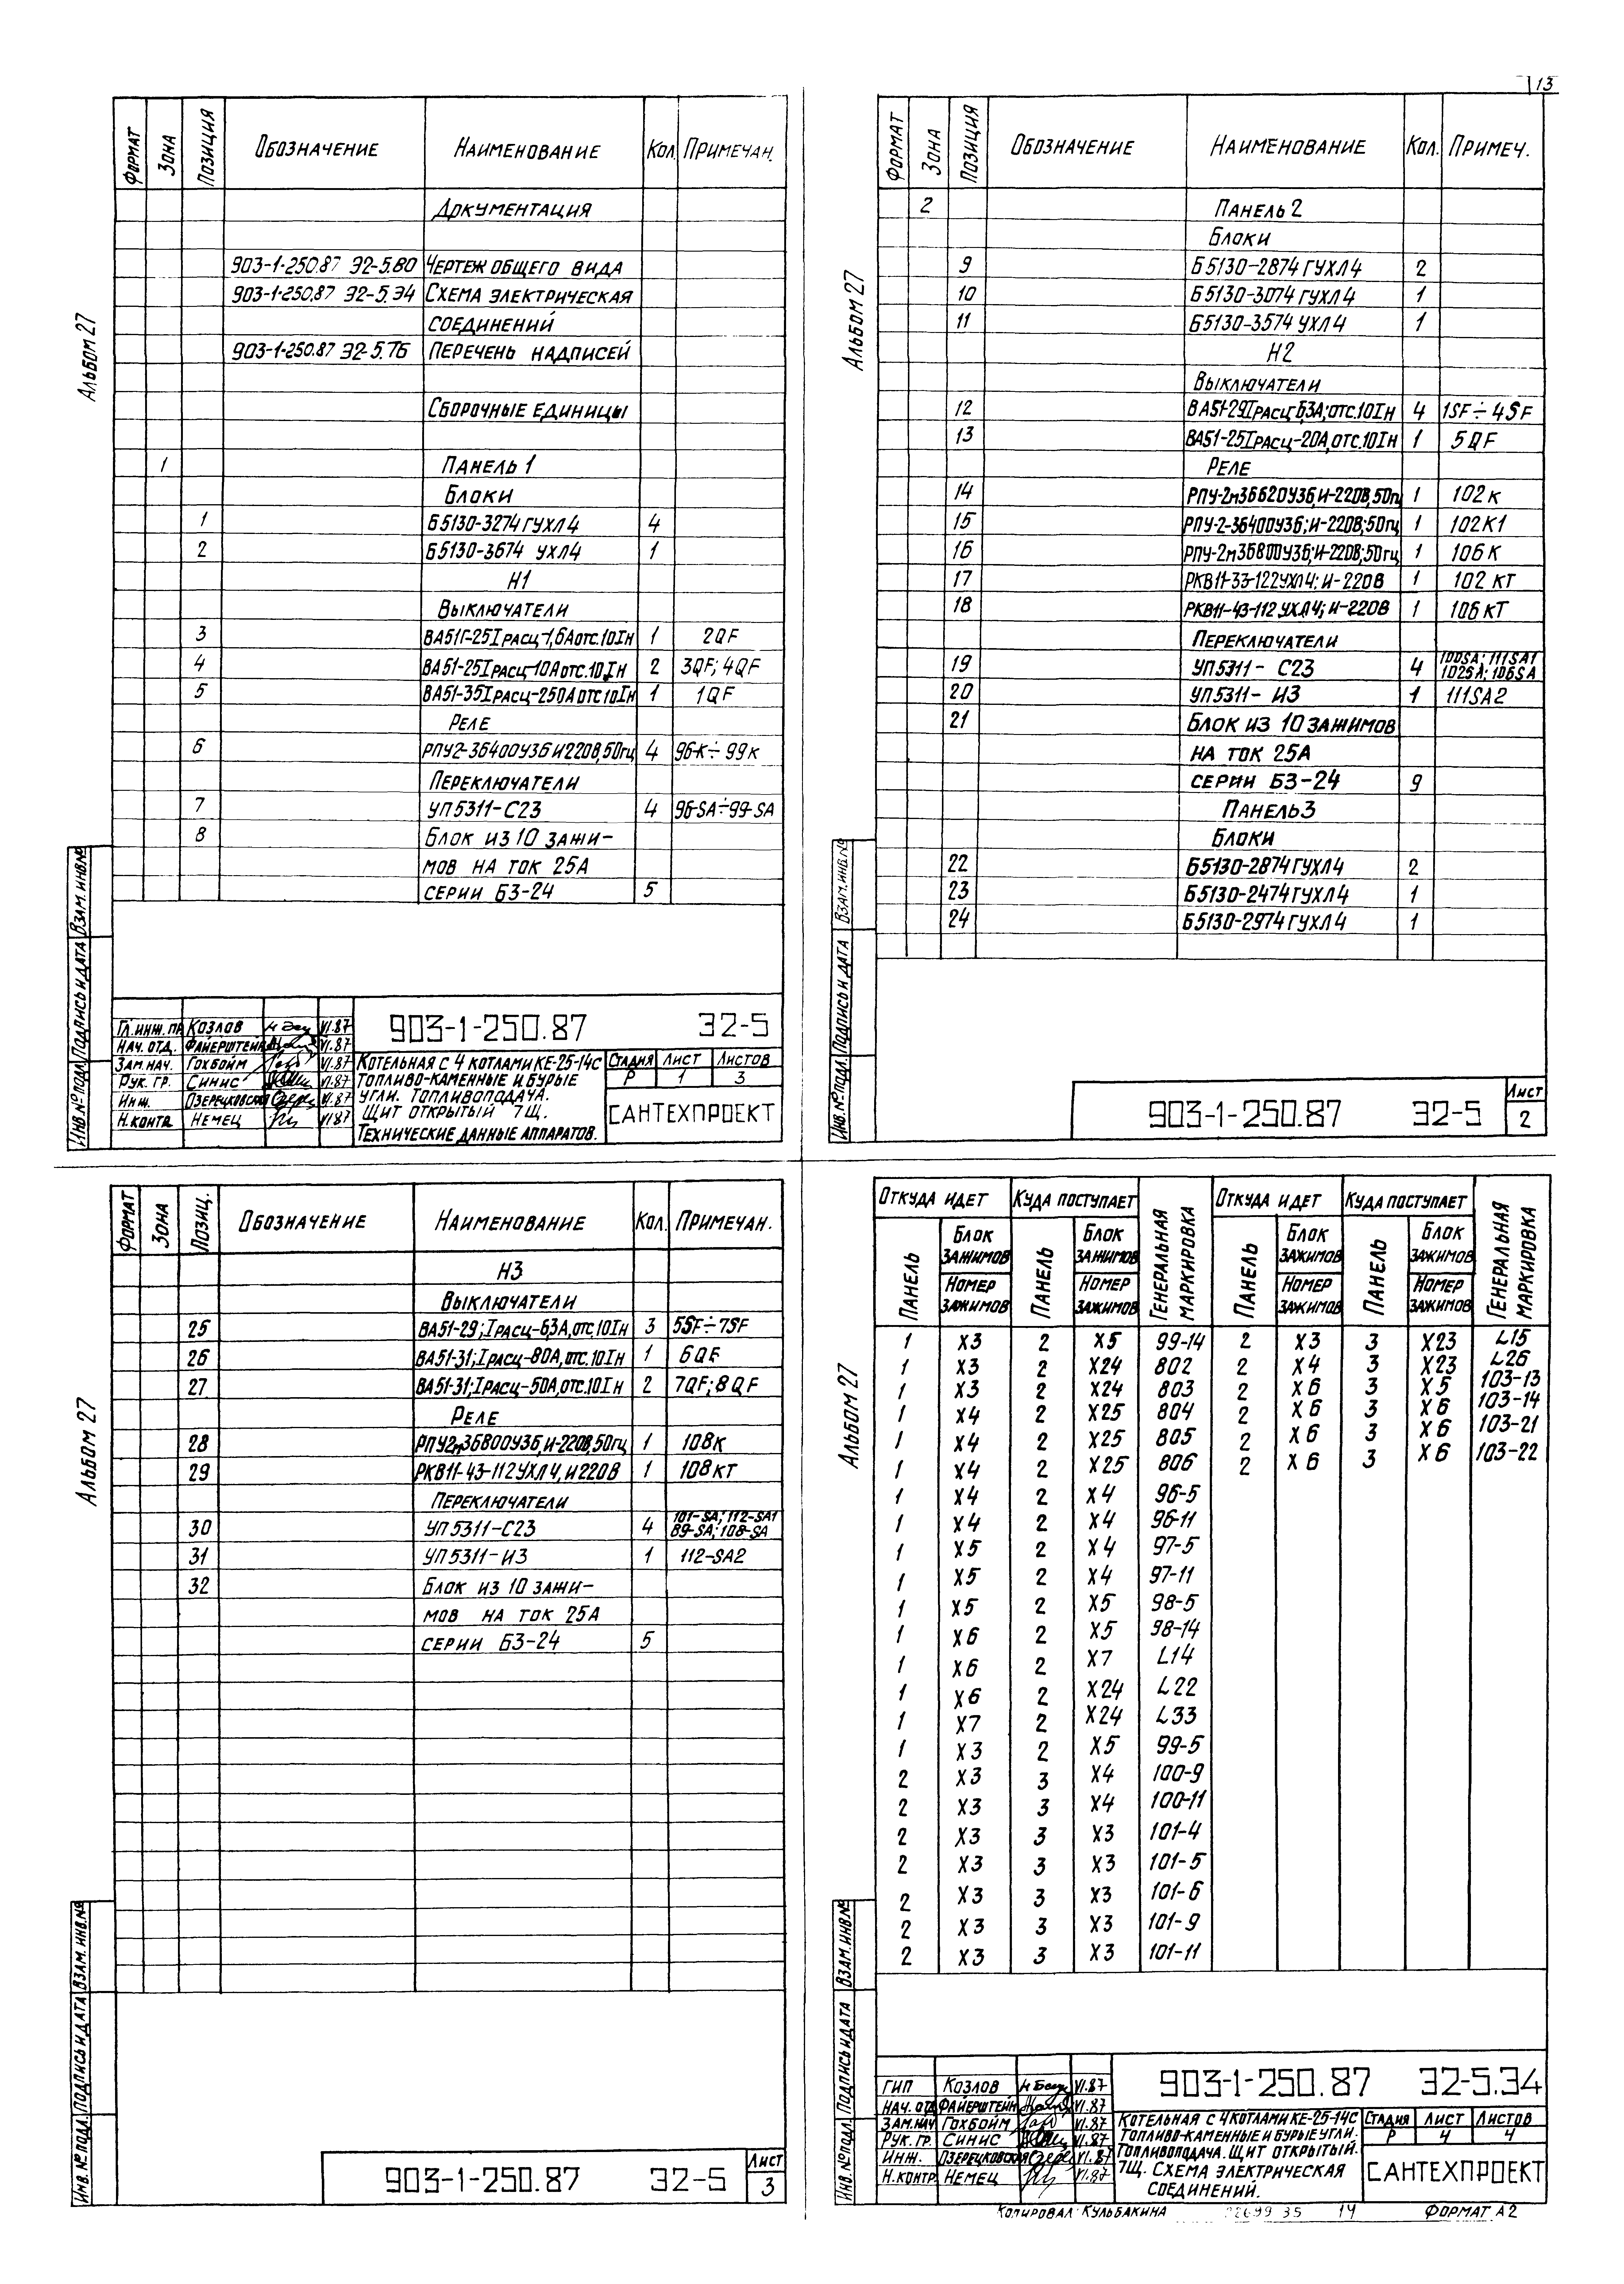 13
Альбом 27
Формат Зона Позиция Обозначение Наименование Кол. Примечан.
Документация
903-1-250.87 Э2-5.В0 Чертеж общего вида
903-1-250.87 Э2-5.Э4 Схема электрическая
соединений
903-1-250.87 Э2-5.ТБ Перечень надписей
Сборочные единицы
1 Панель 1
Блоки
1 Б5130-3274ГУХЛ4 4
2 Б5130-3674 УХЛ4 1
Н1
Выключатели
3 ВА51Г-25Iрасц-1,6А отс.10Iн 1 2QF
4 ВА51-25Iрасц-10А отс.10Iн 2 3QF; 4QF
5 ВА51-35Iрасц-250А отс10Iн 1 1QF
Реле
6 РПУ2-36400У3Б И220В,50гц 4 96-К÷99К
Переключатели
7 УП5311-С23 4 96-SA÷99-SA
8 Блок из 10 зажи-
мов на ток 25А
серии Б3-24 5
Инв.№подл. Подпись и дата Взам. инв.№
Гл.инж.пр Козлов VI.87
Нач. отд. Файерштейн VI.87
Зам.нач. Гохбойм VI.87
Рук. гр. Синис VI.87
Инж. Озерецковская VI.87
Н.контр Немец VI87
903-1-250.87 Э2-5
Котельная с 4 котлами КЕ-25-14С
топливо-каменные и бурые
угли. Топливоподача.
Щит открытый 7Щ.
Технические данные аппаратов.
Стадия Лист Листов
Р 1 3
САНТЕХПРОЕКТ
Альбом 27
Формат Зона Позиция Обозначение Наименование Кол. Примеч.
2 Панель 2
Блоки
9 Б5130-2874ГУХЛ4 2
10 Б5130-3074ГУХЛ4 1
11 Б5130-3574 УХЛ4 1
Н2
Выключатели
12 ВА51-29Iрасц-6,3А;отс.10Iн 4 1SF÷4SF
13 ВА51-25Iрасц-20А,отс.10Iн 1 5QF
Реле
14 РПУ-2м36620У3Б,И-220В,50гц 1 102К
15 РПУ-2-36400У3Б;И-220В;50гц 1 102К1
16 РПУ-2м36800У3Б;И-220В;50гц 1 106К
17 РКВ11-33-122УХЛ4; И-220В 1 102 КТ
18 РКВ11-43-112 УХЛ4; И-220В 1 106КТ
Переключатели
19 УП5311- С23 4 100SA; 111SA1
102SA; 106SA
20 УП5311- И3 1 111SA2
21 Блок из 10 зажимов
на ток 25А
серии Б3-24 9
Панель 3
Блоки
22 Б5130-2874ГУХЛ4 2
23 Б5130-2474ГУХЛ4 1
24 Б5130-2974ГУХЛ4 1
Инв.№подл. Подпись и дата Взам.инв.№
903-1-250.87 Э2-5
Лист
2
Альбом 27
Формат Зона Позиц. Обозначение Наименование Кол. Примечан.
Н3
Выключатели
25 ВА51-29;Iрасц-6,3А,отс.10Iн 3 5SF÷7SF
26 ВА51-31;Iрасц-80А,отс.10Iн 1 6QF
27 ВА51-31;Iрасц-50А,отс.10Iн 2 7QF;8QF
Реле
28 РПУ2м36800У3Б,И-220В,50гц 1 108К
29 РКВ11-43-112УХЛ4, И220В 1 108КТ
Переключатели
30 УП5311-С23 4 101-SA; 112-SA1
89-SA; 108-SA
31 УП5311-И3 1 112-SA2
32 Блок из 10 зажи-
мов на ток 25А
серии Б3-24 5
Инв.№подл. Подпись и дата Взам. инв.№
903-1-250.87 Э2-5
Лист
3
Альбом 27
Откуда идет Куда поступает Генеральная маркировка Откуда идет Куда поступает Генеральная маркировка
Панель Блок зажимов Номер зажимов Панель Блок зажимов Номер зажимов Панель Блок зажимов Номер зажимов Панель Блок зажимов Номер зажимов
1 X3 2 X5 99-14 2 X3 3 X23 L15
1 X3 2 X24 802 2 X4 3 X23 L26
1 X3 2 X24 803 2 X6 3 X5 103-13
1 X4 2 X25 804 2 X6 3 X6 103-14
1 X4 2 X25 805 2 X6 3 X6 103-21
1 X4 2 X25 806 2 X6 3 X6 103-22
1 X4 2 X4 96-5
1 X4 2 X4 96-11
1 X5 2 X4 97-5
1 X5 2 X4 97-11
1 X5 2 X5 98-5
1 X6 2 X5 98-14
1 X6 2 X7 L14
1 X6 2 X24 L22
1 X7 2 X24 L33
1 X3 2 X5 99-5
2 X3 3 X4 100-9
2 X3 3 X4 100-11
2 X3 3 X3 101-4
2 X3 3 X3 101-5
2 X3 3 X3 101-6
2 X3 3 X3 101-9
2 X3 3 X3 101-11
Инв.№подл. Подпись и дата Взам.инв.№
ГИП Козлов VI.87
Нач. отд Файерштейн VI.87
Зам.нач Гохбойм VI.87
Рук. гр. Синис VI.87
Инж. Озерецковская VI.87
Н.контр Немец VI.87
903-1-250.87 Э2-5.Э4
Котельная с 4 котлами КЕ-25-14С
Топливо-каменные и бурые угли.
Топливоподача. Щит открытый.
7Щ. Схема электрическая
соединений.
Стадия Лист Листов
Р 4 4
САНТЕХПРОЕКТ
Копировал: Кульбакина 14 Формат А2